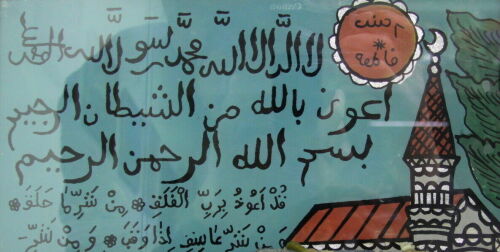 لا اله الا الله محمد رسول الله
اعوذ بالله من الشيطان الرجيم
بسم الله الرحمن الرحيم
قُلْ اَعُوذُ بِرَبِّ الْفَلَقِ * مِنْ شَرِّ مَا خَلَقَ *
وَمِنْ شَرِّ غَاسِقٍ اِذَا وَقَبَ * وَ مِنْ شَرِّ